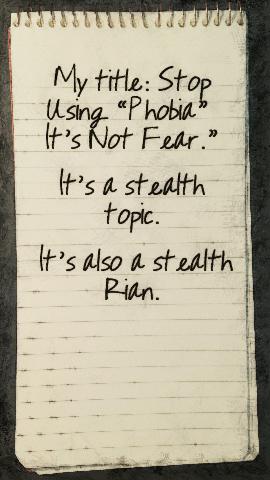 My title: Stop
Using “Phobia”
It's Not Fear.”
It's a stealth
topic.
It's also a stealth
Rian.